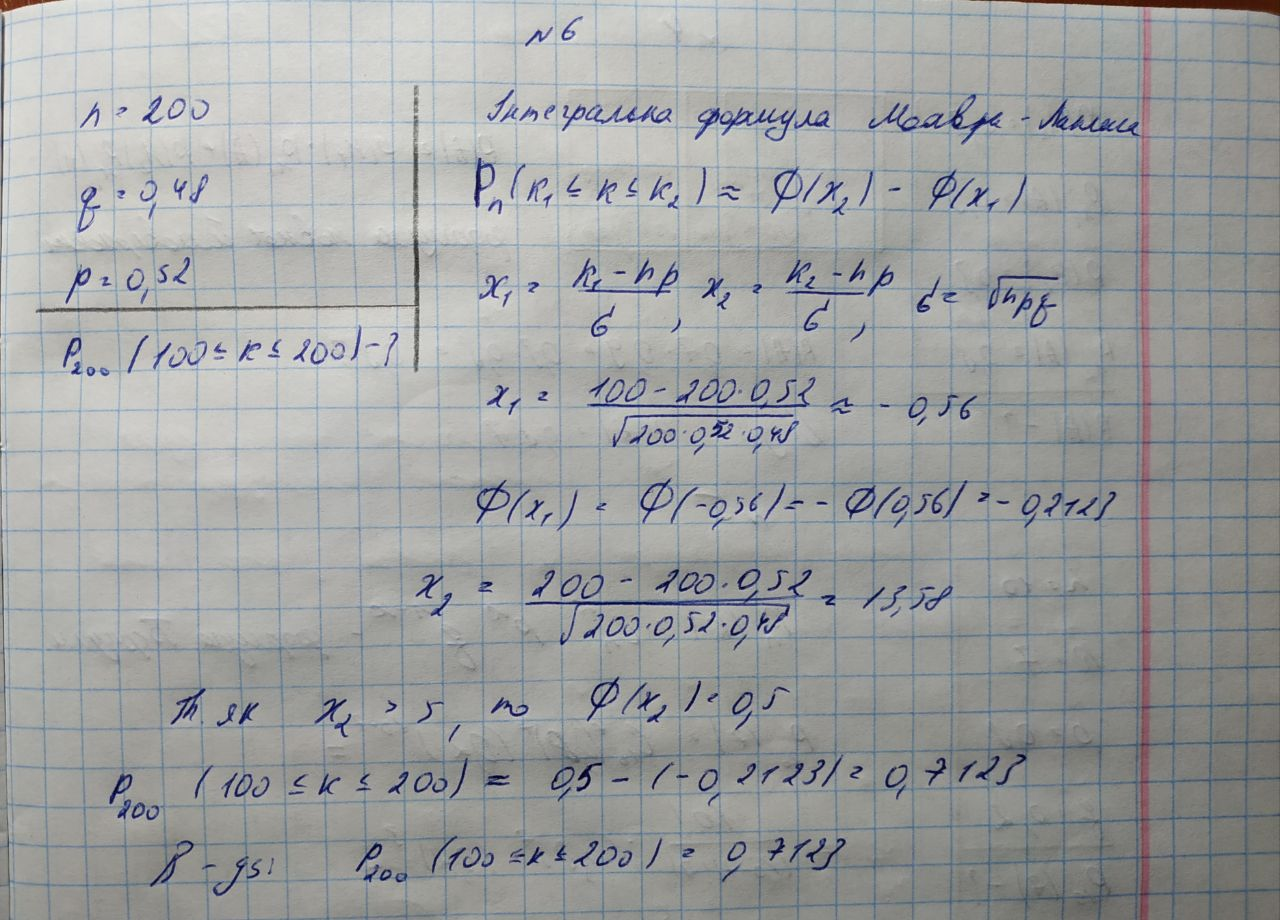 №6
n = 200
q = 0,48
p = 0,52
P₂₀₀ (100 ≤ k ≤ 200) - ?
Інтегральна формула Моавра - Лапласа
Pₙ(k₁ ≤ k ≤ k₂) ≈ Φ(x₂) - Φ(x₁)
x₁ = (k₁ - np)/σ, x₂ = (k₂ - np)/σ, σ = √npq
x₁ = (100 - 200·0,52)/√(200·0,52·0,48) ≈ - 0,56
Φ(x₁) = Φ(-0,56) = - Φ(0,56) = - 0,2123
x₂ = (200 - 200·0,52)/√(200·0,52·0,48) = 13,58
Т як x₂ > 5, то Φ(x₂) = 0,5
P₂₀₀ (100 ≤ k ≤ 200) = 0,5 - (-0,2123) = 0,7123
В-дь: P₂₀₀ (100 ≤ k ≤ 200) = 0,7123